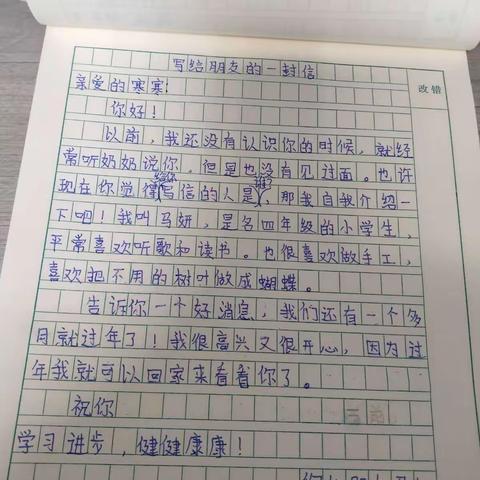 写给朋友的一封信
改错
亲爱的寒寒:
你好!
以前,我还没有认识你的时候,就经
常听奶奶说你,但是也没有见过面。也许
现在你觉得给你写信的人是谁?那我自我介绍一
下吧!我叫马妍,是名四年级的小学生,
平常喜欢听歌和读书。也很喜欢做手工,
喜欢把不用的树叶做成蝴蝶。
告诉你一个好消息,我们还有一个多
月就过年了!我很高兴又很开心,因为过
年我就可以回家来看看你了。
祝你
学习进步,健健康康!